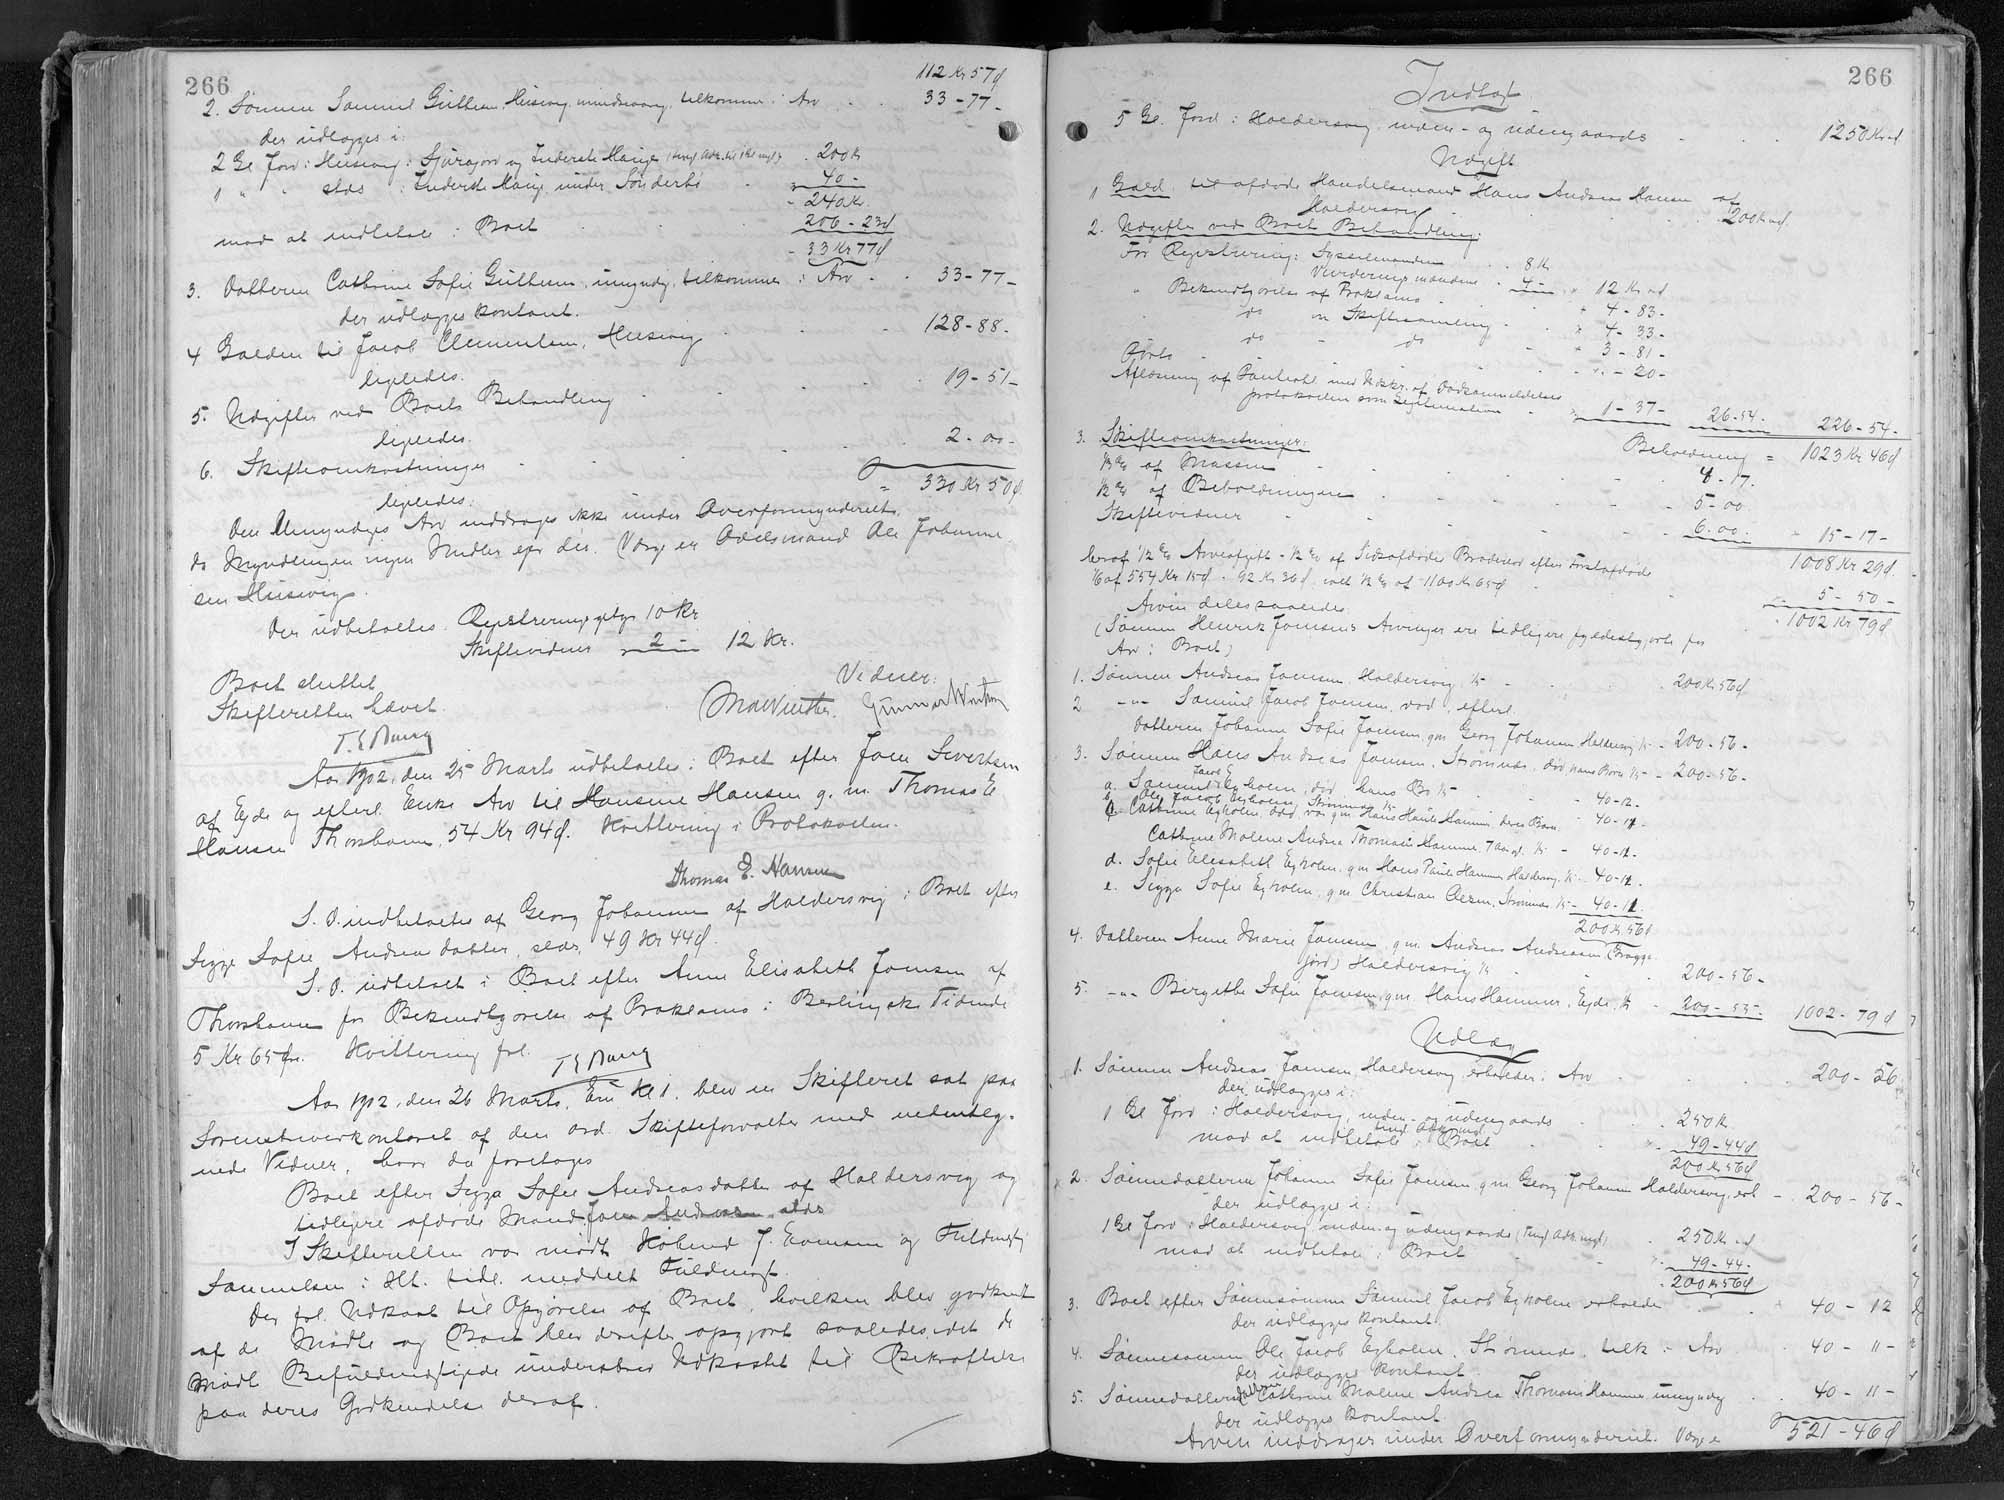 266
112 Kr 57 ø
2. Sønnen Samuel Guttesen, Husevig, mindreaarig, tilkommer i Arv 33-77-
der udlægges i:
2 Gl Jord i Husevig: 200 Kr
1 " " stds : Inderste Hauge, under Sønderbø 40-
240 Kr.
mod at indbetale i Boet 206-23 ø
33 Kr 77 ø
3. Datteren Cathrine Sofie Guttesen, umyndig, tilkommer i Arv 33-77-
der udlægges kontant.
4 Gælden til Jacob Clementsen, Husevig 128-88-
ligeledes.
5. Udgifter ved Boets Behandling 19-51-
ligeledes.
6. Skifteomkostninger 2-00-
ligeledes.
= 330 Kr 50 ø.
Den Umyndiges Arv inddrages ikke under Overformynderiet,
da Myndlingen ingen Midler ejer der. Værge er Odelsmand Ole Johanne-
sen Husevig.
Der udbetaltes Registreringsgebyr 10 Kr
Skiftevidner 2 - 12 Kr.
Boet sluttet
Skifteretten hævet.
Vidner:
Aar 1902, den 25 Marts udbetaltes i Boet efter Joen Sivertsen
af Ejde og efterl. Enke Arv til Hansine Hansen g. m. Thomas E
Hansen Thorshavn, 54 Kr 94 ø. Kvittering i Protokollen.
Thomas E. Hansen
S. D. indbetaltes af Georg Johansen af Haldersvig i Boet efter
Sigge Sofie Andreasdatter, stds, 49 Kr 44 ø.
S. D. udbetalt i Boet efter Anne Elisabeth Joensen af
Thorshavn for Bekendtgørelse af Proklama i Berlingske Tidende
5 Kr 65 ø. Kvittering fol.
Aar 1902, den 26 Marts, Em. Kl 1. blev en Skifteret sat paa
Sorenskriverkontoret af den ord. Skifteforvalter med undenteg-
nede Vidner, hvor da foretoges
Boet efter Sigga Sofie Andreasdatter af Haldersvig og
tidligere afdøde Mand Joen Andreasen, stds
I Skifteretten var mødt og Fuldmægtig
Samuelsen i Hht. tidl. meddelt Fuldmagt.
Der fol. Udkast til Opgørelse af Boet, hvilken blev godkendt
af de Mødte og Boet blev derefter opgjort saaledes, idet de
mødt Befuldmægtigede underskrev Udkastet til Bekræftelse
paa deres Godkendelse deraf.
266
Indtægt.
5 Gl. Jord i Haldersvig, inden- og udengaards 1250 Kr ø
Udgift
1 Gæld. til afdøde Handelsmand Hans Andreas Hansen af
Haldersvig 200 Kr ø.
2. Udgifter ved Boets Behandling:
For Registrering: Sysselmanden 8 Kr
Vurderingsmændene 4- 12 Kr ø
" Bekendtgørelse af Proklama 4-83-
do om Skiftesamling 4-33-
do - do 3-81-
Porto -20-
Aflæsning af
protokollen som Legitimation 1-37- 26-54- 226-54-
3. Skifteomkostninger: Beholdning = 1023 Kr 46 ø
½ % af Massen 4-17.
½ % af Beholdningen 5-00
Skiftevidner 6.00 15-17-
1008 Kr 29 ø.
heraf ½ % Arveafgift
1/6 af 554 Kr 15 ø = 92 Kr 36 ø, ialt ½ % af 1100 Kr 65 ø 5-50-
Arven deles saaledes 1002 Kr 79 ø
(Sønnen Henrik Joensens Arvinger ere tidligere fyldestgjorte for
Arv i Boet)
1. Sønnen Andreas Joensen, Haldersvig, 1/5 200 Kr 56 ø
2 -"- Samuel Jacob Joensen, død, efterl.
Datteren Johanne Sofie Joensen, gm Georg Johansen Haldersvig 1/5 - 200-56-
3. Sønnen Hans Andreas Joensen, Strømnæs, død, hans Børn 1/5 - 200-56-
a. Samuel Jacob Egholm, død, hans Bo 1/5 40-12-
b. Ole Jacob Egholm, Strømnæs 1/5 40-11-
c. Cathrine Egholm, død, var gm Hans Pauli Hammer, deres Barn
Cathrine Malene Andrea Thomasia Hammer, 7 Aar gl. 1/5 - 40-11-
d. Sofie Elisabeth Egholm, gm Hans Pauli Hammer, Haldersvig, 1/5 - 40-11.
e. Sigga Sofie Egholm, gm Christian Strømnæs, 1/5 - 40-11.
200 Kr 56 ø
4. Datteren Anne Marie Joensen, gm Andreas Andreasen
Haldersvig 1/5 200-56-
5. -"- Bergithe Sofie Joensen, gm Hans Hammer, Ejde, 1/5 200-55- 1002-79 ø
Udlæg
1. Sønnen Andreas Joensen, Haldersvig, erholder i Arv 200-56
der udlægges i:
1 Gl Jord i Haldersvig, inden- og udengaards 250 Kr.
mod at indbetale i Boet 49-44 ø
200 Kr 56 ø
2. Sønnedatteren Johanne Sofie Joensen, gm Georg Johansen Haldersvig, erh - 200-56-
der udlægges i:
1 Gl Jord i Haldersvig inden- og udengaards 250 Kr ø
mod at indbetale i Boet 49-44-
200 Kr 56 ø
3. Boet efter Sønnesønnen Samuel Jacob Egholm erholder 40-12
der udlægges kontant.
4. Sønnesønnen Ole Jacob Egholm, Strømnæs, tilk. i Arv 40-11-
der udlægges kontant
5. Sønnedatterens Datter Cathrine Malene Andrea Thomasia Hammer, umyndig 40-11-
der udlægges kontant
Arven inddrages under Overformynderiet. Værge er 521-46 ø